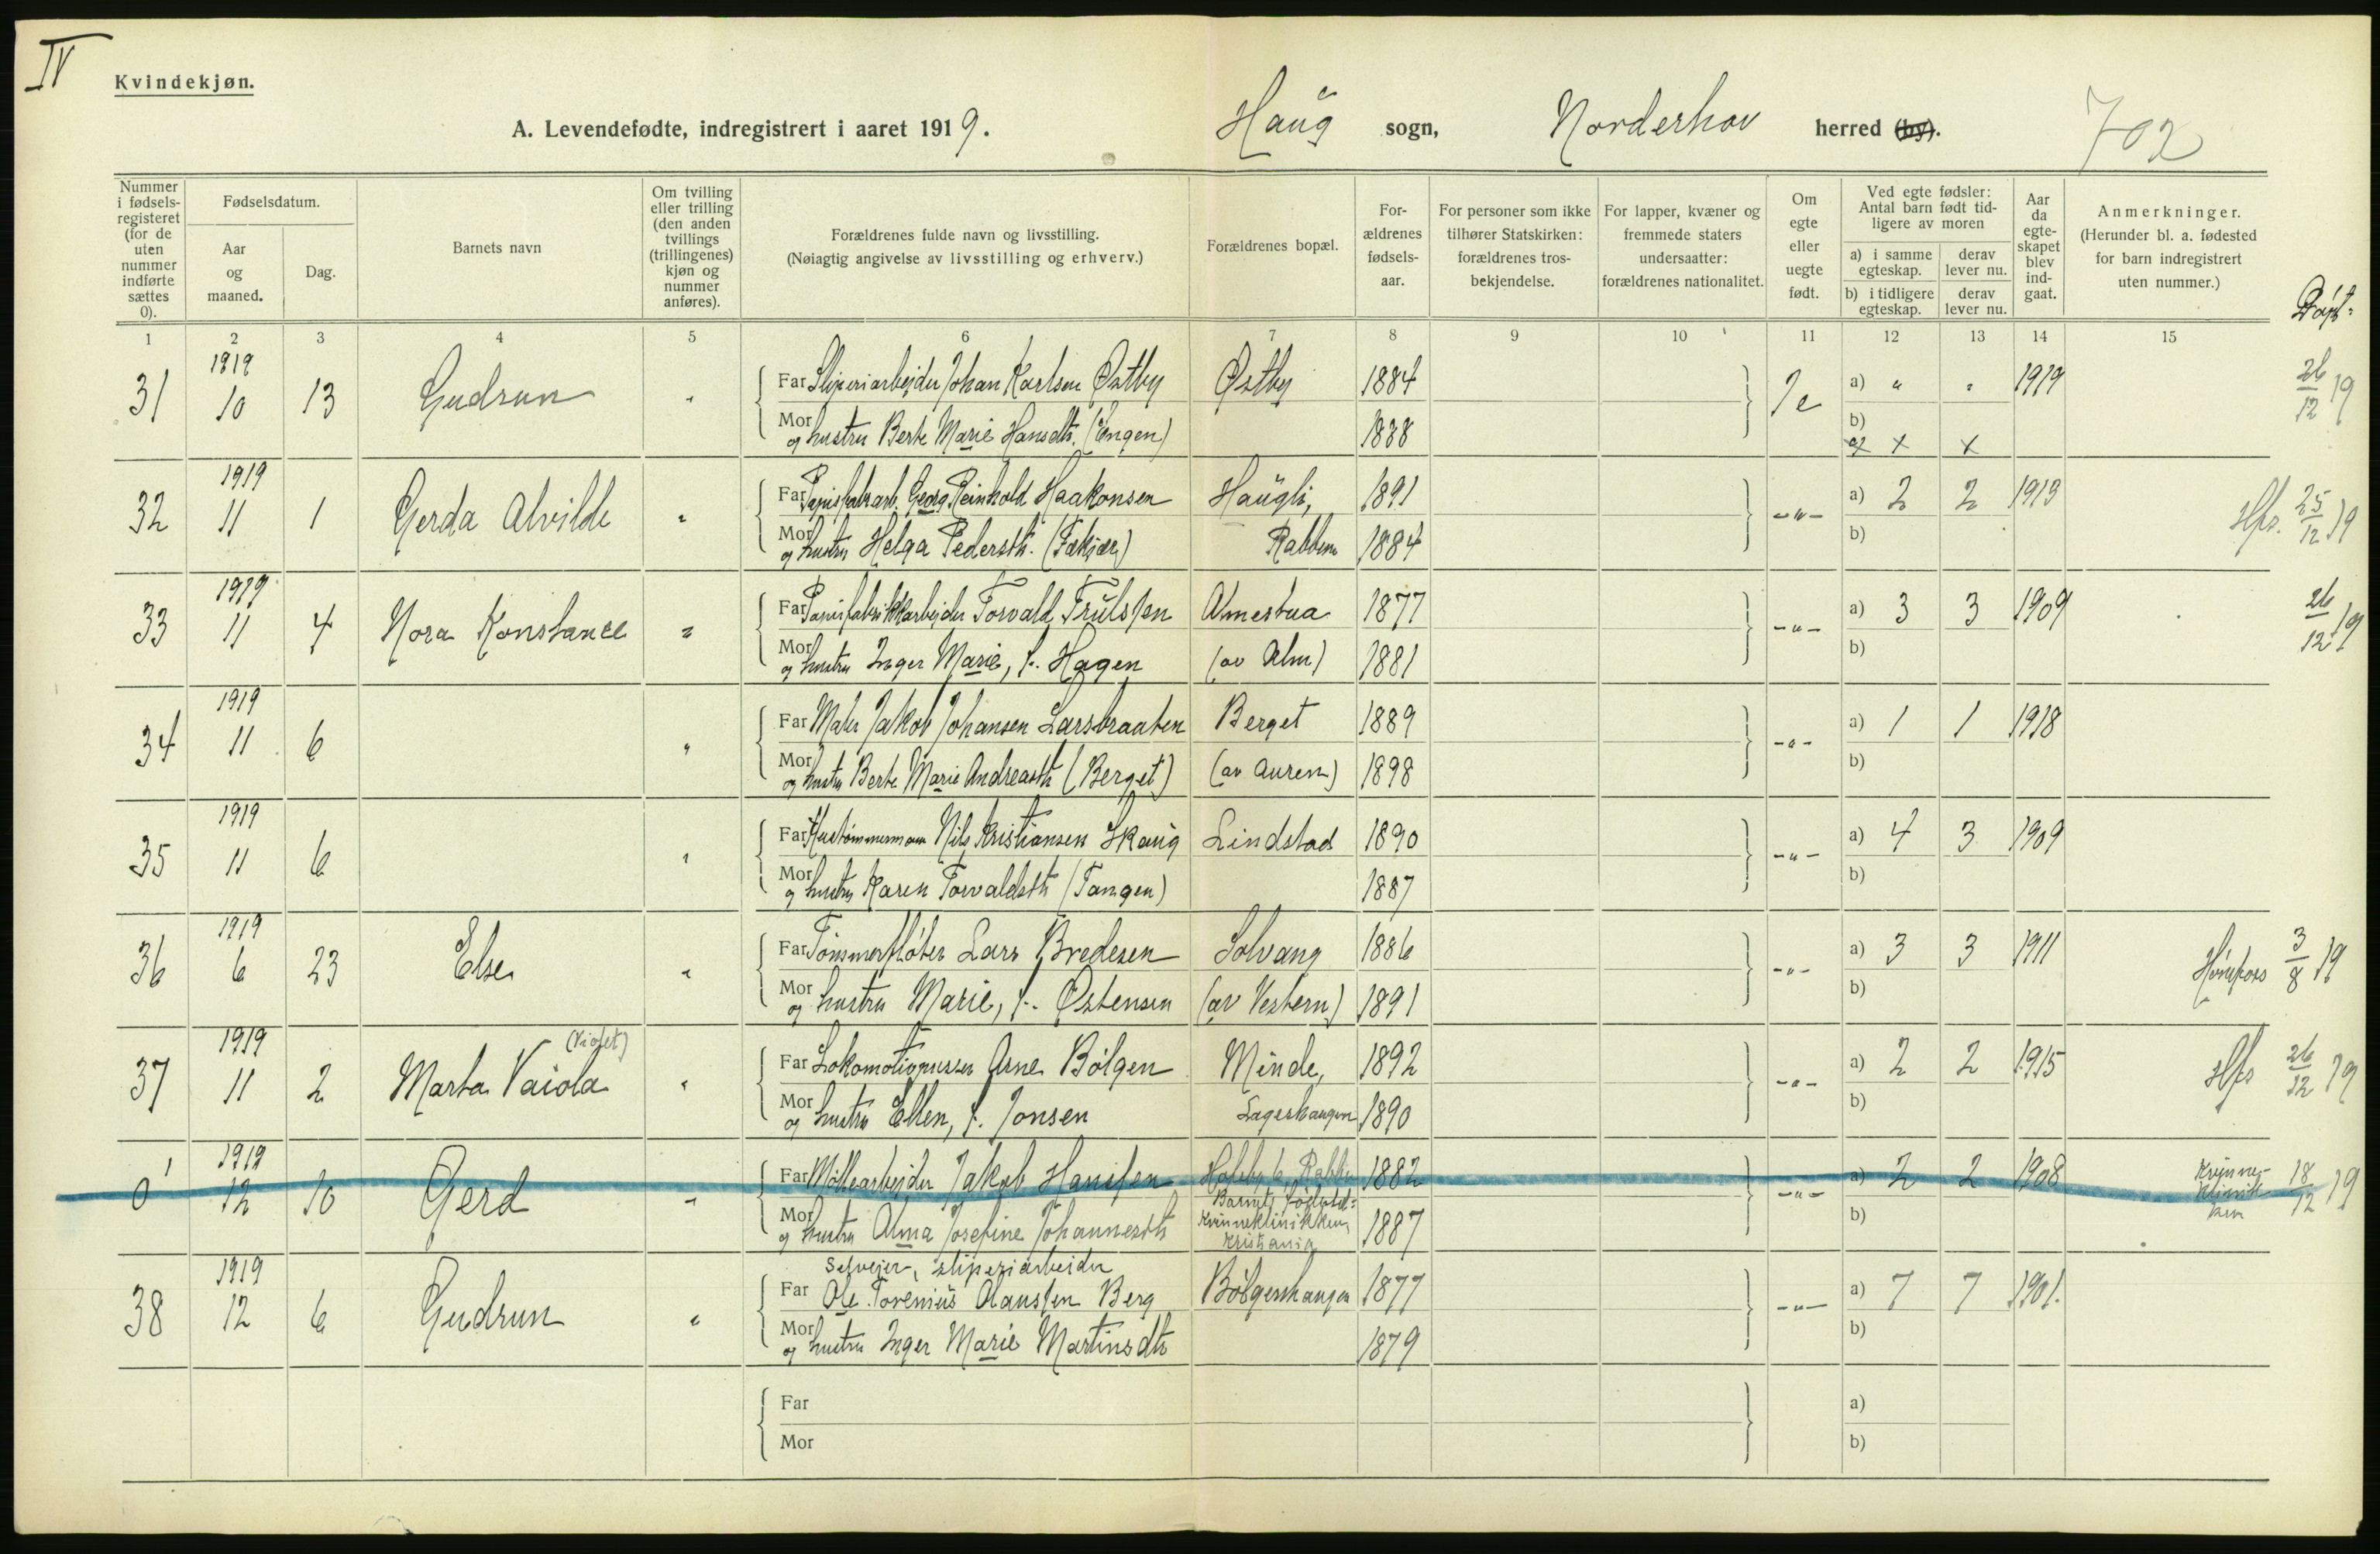 IV
Kvindekjøn.
A. Levendefødte, indregistrert i aaret 1919.
Haug sogn, Norderhov herred (by).
702
Nummer i fødselsregisteret (for de uten nummer indførte sættes 0).
Fødselsdatum.
Aar og maaned.
Dag.
Barnets navn
Om tvilling eller trilling (den anden tvillings (trillingenes) kjøn og nummer anføres).
Forældrenes fulde navn og livsstilling.
(Nøiagtig angivelse av livsstilling og erhverv.)
Forældrenes bopæl.
Forældrenes fødselsaar.
For personer som ikke tilhører Statskirken: forældrenes trosbekjendelse.
For lapper, kvæner og fremmede staters undersaatter: forældrenes nationalitet.
Om egte eller uegte født.
Ved egte fødsler: Antal barn født tidligere av moren
a) i samme egteskap.
derav lever nu.
b) i tidligere egteskap.
derav lever nu.
Aar da egteskapet blev indgaat.
Anmerkninger.
(Herunder bl. a. fødested for barn indregistrert uten nummer.)
Døpt:
1 2 3 4 5 6 7 8 9 10 11 12 13 14 15
31 1919 10 13 Gudrun " Far Sliperiarbejder Johan Karlsen Østby Østby 1884 a) " " 1919 26/12 19
Mor og hustru Berte Marie Hansdtr. (Engen) 1888 b)
x x
32 1919 11 1 Gerda Alvilde " Far Georg Reinhold Haakonsen Haugli, 1891 -"- a) 2 2 1913 Hfs. 25/12 19
Mor og hustru Helga Pedersdtr. Rabben 1884 b)
33 1919 11 4 Nora Konstance " Far Papirfabrikkarbejder Torvald Trulssen Almestua 1877 -"- a) 3 3 1909 26/12 19
Mor og hustru Inger Marie, f. Hagen (av Alm) 1881 b)
34 1919 11 6 " Far Maler Jakob Johansen Larsbraaten Berget 1889 -"- a) 1 1 1918
Mor og hustru Berte Marie Andreasdtr (Berget) (av Auren) 1898 b)
35 1919 11 6 " Far Hustømmermann Nils Kristiansen Skaug Lindstad 1890 -"- a) 4 3 1909
Mor og hustru Karen Torvaldsdtr (Tangen) 1887 b)
36 1919 6 23 Else " Far Tømmerfløter Lars Bredesen Solvang 1886 -"- a) 3 3 1911 Hønefoss 3/8 19
Mor og hustru Marie, f. Østensen (av Vestern) 1891 b)
37 1919 11 2 Marta Vaiola (Violet) " Far Lokomotivpusser Arne Bølgen Minde, 1892 -"- a) 2 2 1915 Hfs 26/12 19
Mor og hustru Ellen, f. Jonsen 1890 b)
0 1 1919 12 10 Gerd " Far Møllearbejder Jakob Hanssen 1882 -"- a) 2 2 1908 Kvinneklinik 18/12 19
Mor og hustru Alma Josefine Johannesdtr Barnets fødested: Kvinneklinikken, Kristiania 1887 b)
Selveier, sliperiarbeider
38 1919 12 6 Gudrun " Far Ole Torenius Olaussen Berg Bølgerhaugen 1877 -"- a) 7 7 1901.
Mor og hustru Inger Marie Martinsdtr 1879 b)
Far a)
Mor b)